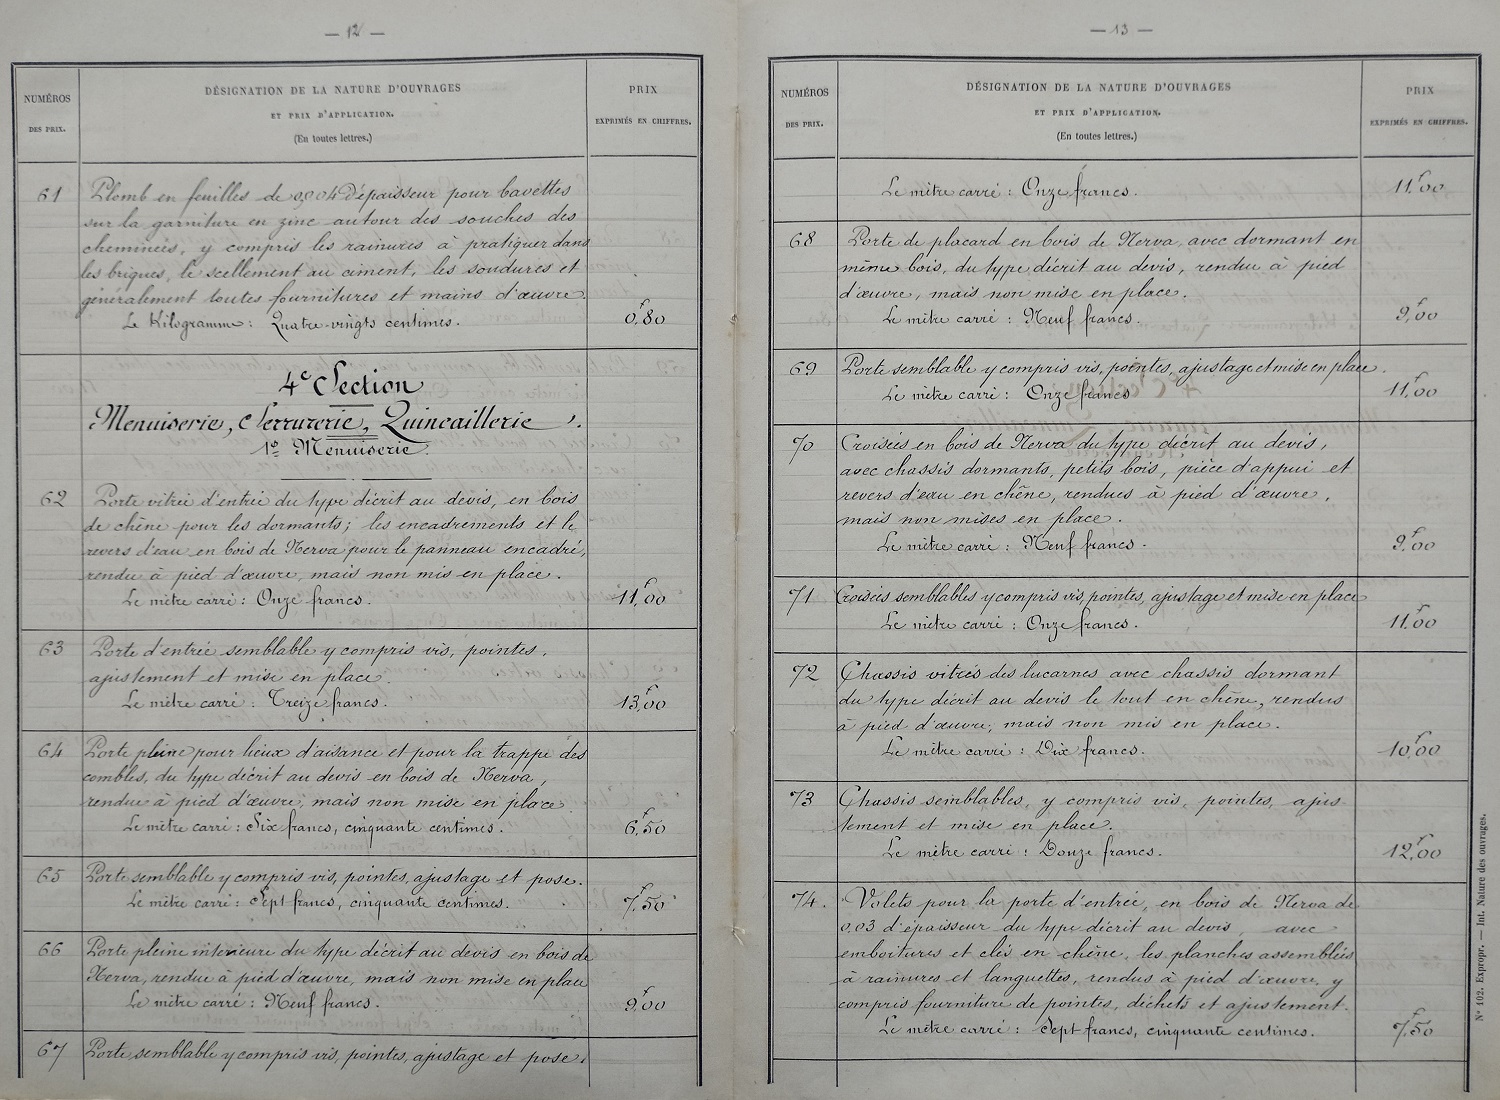 — 12 —
NUMÉROS
DES PRIX.
DÉSIGNATION DE LA NATURE D'OUVRAGES
ET PRIX D'APPLICATION.
(En toutes lettres.)
PRIX
EXPRIMÉS EN CHIFFRES.
61 Plomb en feuilles de 0,004 d'épaisseur pour bavettes
sur la garniture en zinc autour des souches des
cheminées, y compris les rainures à pratiquer dans
les briques, le scellement au ciment, les soudures et
généralement toutes fournitures et mains d'œuvre.
Le Kilogramme : Quatre-vingts centimes. 0f,80
4e Section
Menuiserie, Serrurerie, Quincaillerie.
1º Menuiserie.
62 Porte vitrée d'entrée du type décrit au devis, en bois
de chêne pour les dormants; les encadrements et le
revers d'eau en bois de Nerva pour le panneau encadré,
rendue à pied d'œuvre, mais non mis en place.
Le mètre carré : Onze francs. 11f,00
63 Porte d'entrée semblable y compris vis, pointes,
ajustement et mise en place.
Le mètre carré : Treize francs. 13f,00
64 Porte pleine pour lieux d'aisance et pour la trappe des
combles, du type décrit au devis en bois de Nerva,
rendue à pied d'œuvre, mais non mise en place
Le mètre carré : Six francs, cinquante centimes. 6f,50
65 Porte semblable y compris vis, pointes, ajustage et pose.
Le mètre carré : Sept francs, cinquante centimes. 7f,50
66 Porte pleine intérieure du type décrit au devis en bois de
Nerva, rendue à pied d'œuvre, mais non mise en place
Le mètre carré : Neuf francs. 9f,00
67 Porte semblable y compris vis, pointes, ajustage et pose.
— 13 —
NUMÉROS
DES PRIX.
DÉSIGNATION DE LA NATURE D'OUVRAGES
ET PRIX D'APPLICATION.
(En toutes lettres.)
PRIX
EXPRIMÉS EN CHIFFRES.
Le mètre carré : Onze francs. 11f,00
68 Porte de placard en bois de Nerva, avec dormant en
même bois, du type décrit au devis, rendue à pied
d'œuvre, mais non mise en place.
Le mètre carré : Neuf francs. 9f,00
69 Porte semblable y compris vis, pointes, ajustage et mise en place.
Le mètre carré : Onze francs 11f,00
70 Croisées en bois de Nerva du type décrit au devis,
avec chassis dormants, petits bois, pièce d'appui et
revers d'eau en chêne, rendues à pied d'œuvre,
mais non mises en place.
Le mètre carré : Neuf francs. 9f,00
71 Croisées semblables y compris vis, pointes, ajustage et mise en place
Le mètre carré : Onze francs. 11f,00
72 Chassis vitrés des lucarnes avec chassis dormant
du type décrit au devis le tout en chêne, rendus
à pied d'œuvre, mais non mis en place.
Le mètre carré : Dix francs. 10f,00
73 Chassis semblables, y compris vis, pointes, ajus-
tement et mise en place.
Le mètre carré : Douze francs. 12f,00
74. Volets pour la porte d'entrée, en bois de Nerva de
0,03 d'épaisseur du type décrit au devis, avec
emboitures et clés en chêne, les planches assemblées
à rainures et languettes, rendus à pied d'œuvre, y
compris fourniture de pointes, déchets et ajustement.
Le mètre carré : Sept francs, cinquante centimes. 7f,50
Nº 102. Expropr. — Int. Nature des ouvrages.